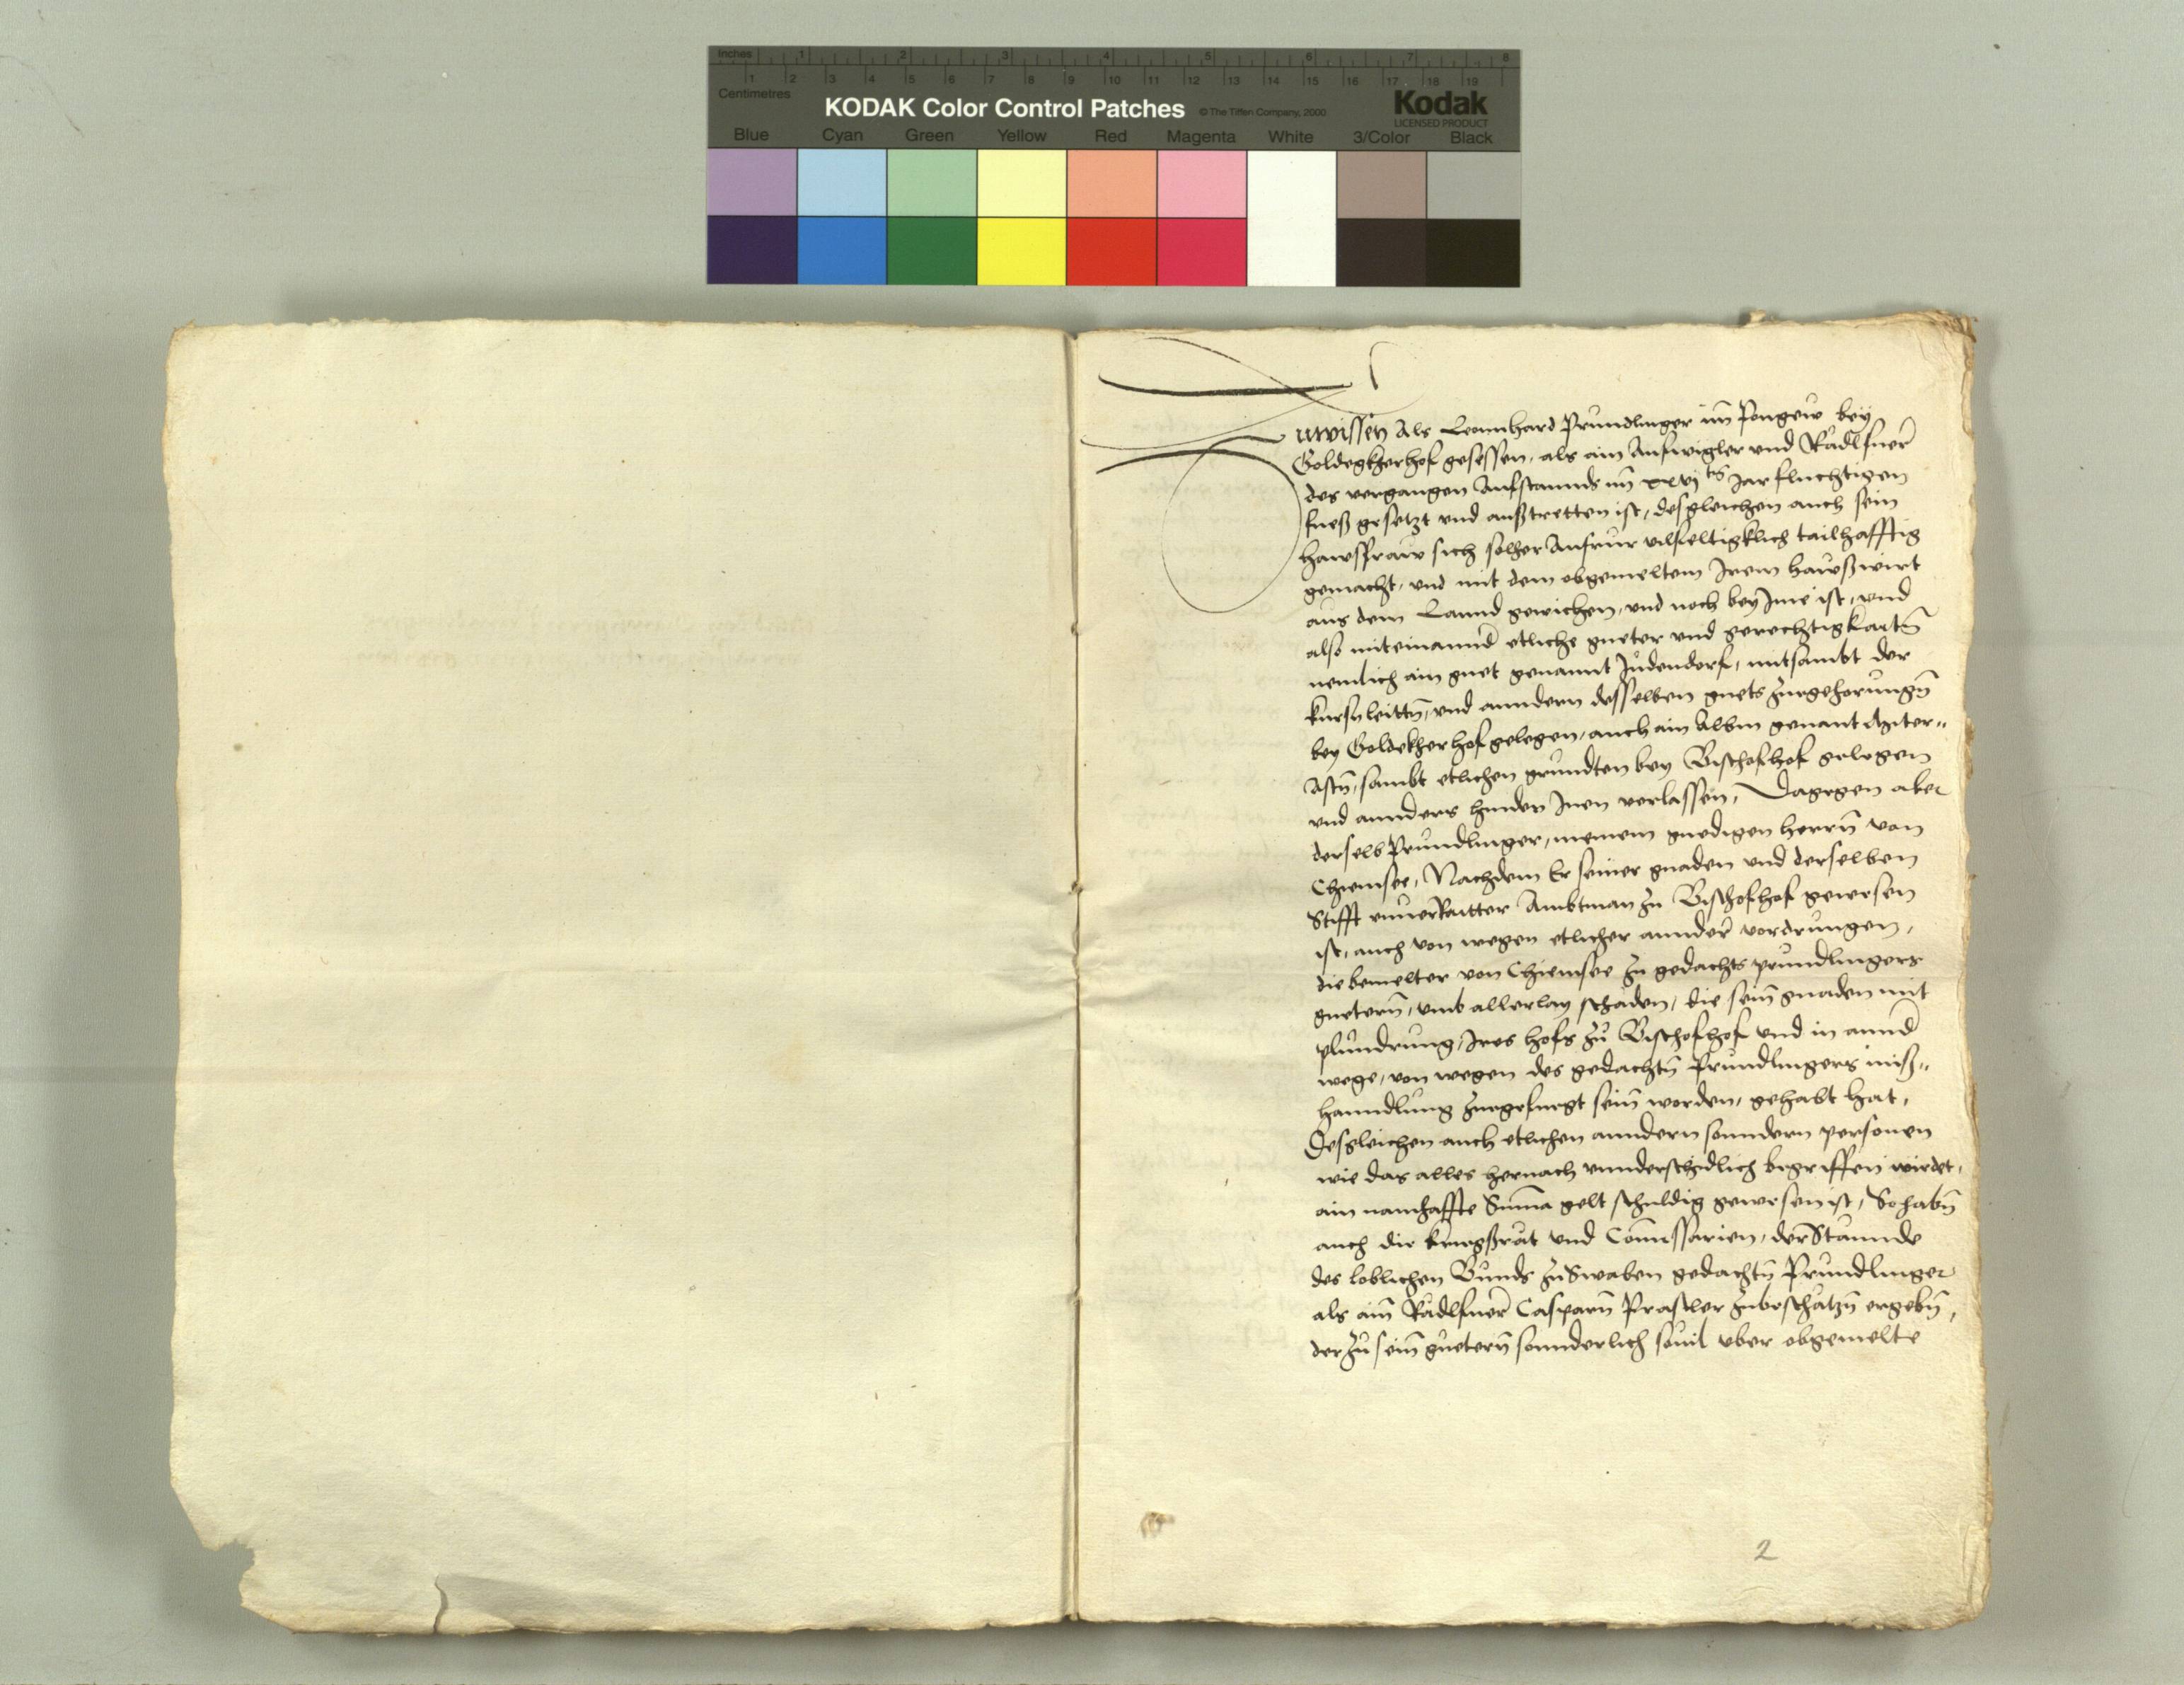 Inches 1 2 3 4 5 6 7 8
1 2 3 4 5 6 7 8 9 10 11 12 13 14 15 16 17 18 19
Centimetres
KODAK Color Control Patches © The Tiffen Company, 2000 Kodak
LICENSED PRODUCT
Blue Cyan Green Yellow Red Magenta White 3/Color Black
Zuwissen Als Leonnhard Prundlinger im Pongew bey
Goldegkherhof gesessen, als ain Aufwigler und Radlfuerer
des vergangen Aufstannds im xxvjten Jar fluchtigen
fueß gesetzt vnd außtretten ist, desgleichen auch sein
hawsfraw sich solher Aufrur vilfeltigklich tailhafftig
gemacht, vnd mit dem obgemeltem Irem hawßwirt
aus dem Lannd gewichen, vnd noch bey Ime ist, vnd
also miteinannd etliche gueter vnd gerechtigkaitn
nemlich ain guet genannt Judendorf, mitsambt der
leittn, vnd anndern desselben guets zuegehorungn
bey Goldekherhof gelegen, auch ain Albm genant
sambt etlichen grundten bey Bischofhof gelegen
vnd annders hinder Inen verlassen, Dagegen aber
derselb Prundlinger, meinem gnedigen herrn von
Chiemsee, Nachdem Er seiner gnaden vnd derselben
Stifft vnuerraitter Ambtman zu Bischofhof gewesen
ist, auch von wegen etlicher annder vordrungen,
die bemelter von Chiemsee zu gedachts Prundlingers
guetern, vmb allerlay schaden, die sein gnaden mit
plundrung, Ires hofs zu Bischofhof vnd in annd
wege, von wegen des gedachtn Prundlingers miß„
hanndlung zuegefuegt sein worden, gehabt hat,
Desgleichen auch etlichen anndern sonndern personen
wie das alles hernach vnnderschidlich begriffen wirdet,
ain namhaffte Suma gelt schuldig gewesen ist, So habn
auch die kriegßrat vnd Comissarien, der Stannde
des loblichen Bunds zu Swaben gedachtn Prundlinger
als ain Radlfuerer Casparn Praßler zubeschatzn ergebn,
der zu sein guetern sonnderlich souil vber obgemelte
2